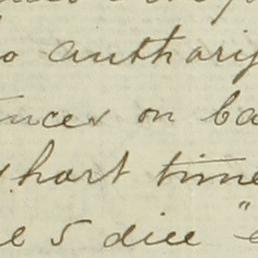 o authori
nces on ba
short time
e 5 dice "